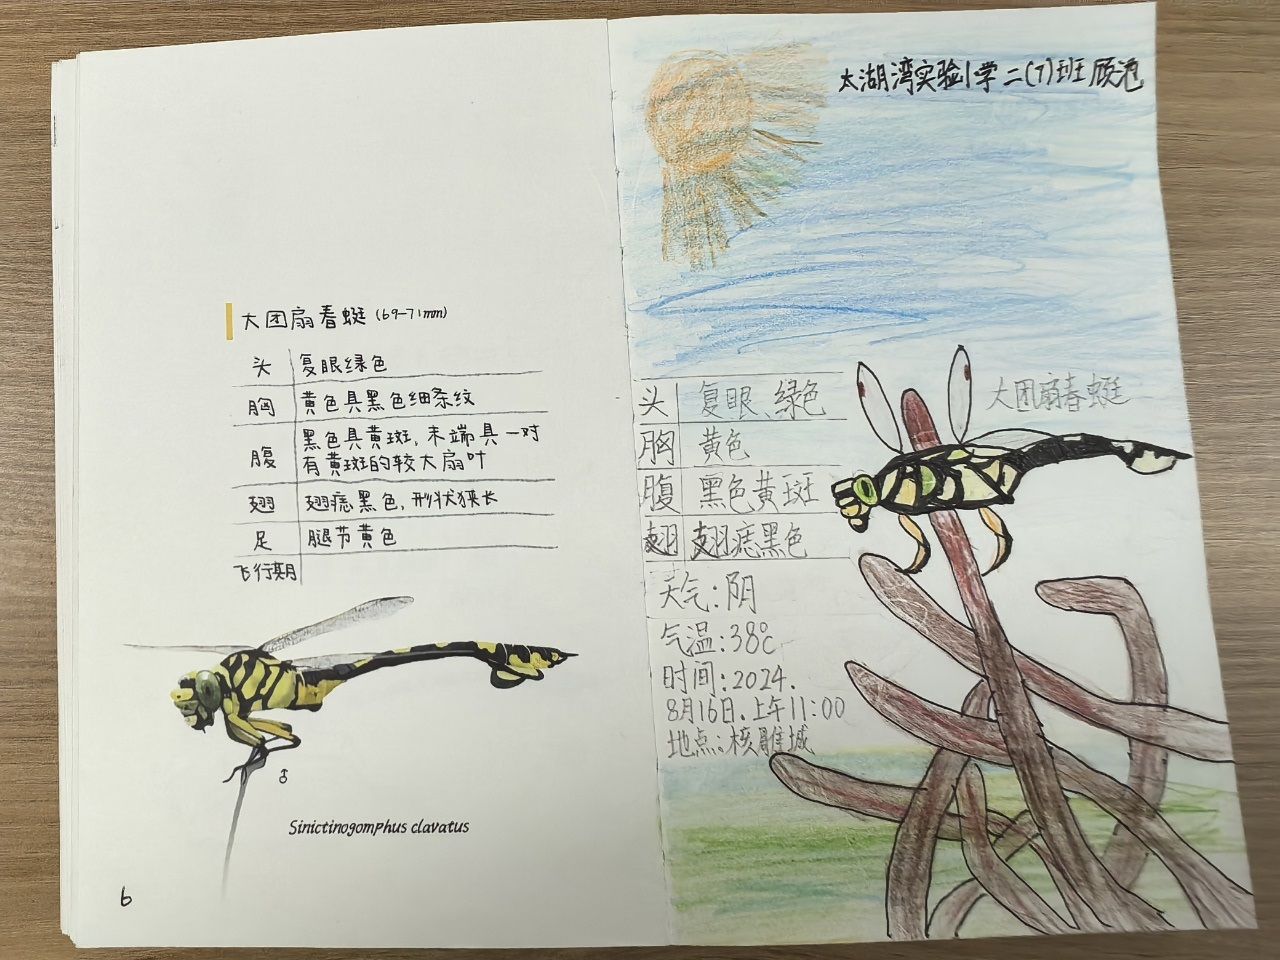 大团扇春蜓 (69-71mm)
头 复眼绿色
胸 黄色具黑色细条纹
腹 黑色具黄斑，末端具一对
有黄斑的较大扇叶
翅 翅痣黑色，形状狭长
足 腿节黄色
飞行期
♂
Sinictinogomphus clavatus
6
太湖湾实验小学二(7)班 顾
大团扇春蜓
头 复眼、绿色
胸 黄色
腹 黑色黄斑
翅 翅痣黑色
天气:阴
气温:38℃
时间:2024.
8月16日.上午11:00
地点:核雕城